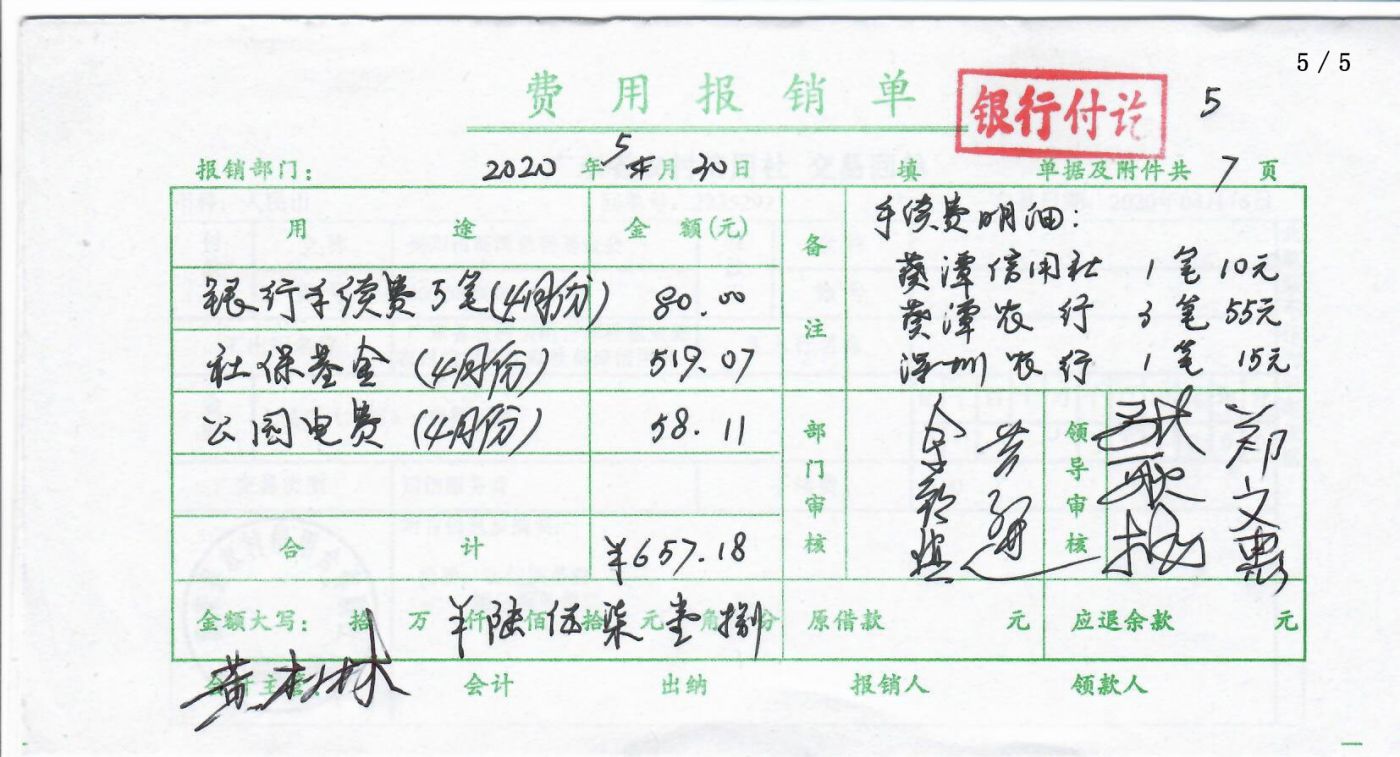 5/5
费用报销单
银行付讫
5
报销部门：
2020年5月30日
填
单据及附件共7页
用途
金额(元)
备注
手续费明油：
银行手续费5笔(4月份)
80.00
葵潭信用社 1笔 10元
葵潭农行 3笔 55元
社保基金(4月份)
519.07
深圳农行 1笔 15元
公园电费(4月份)
58.11
部门审核
领导审核
郑文惠
合计
¥657.18
金额大写：
拾万¥陆仟伍佰柒拾元壹角捌分
原借款 元
应退余款 元
会计主管：
黄林林
会计
出纳
报销人
领款人